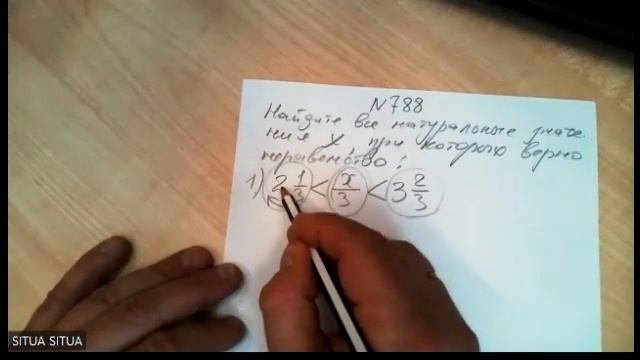 N788
Найдите все натуральные значе-
ния x, при которых верно
неравенство:
1) 2 1/3 < x/3 < 3 2/3
SITUA SITUA